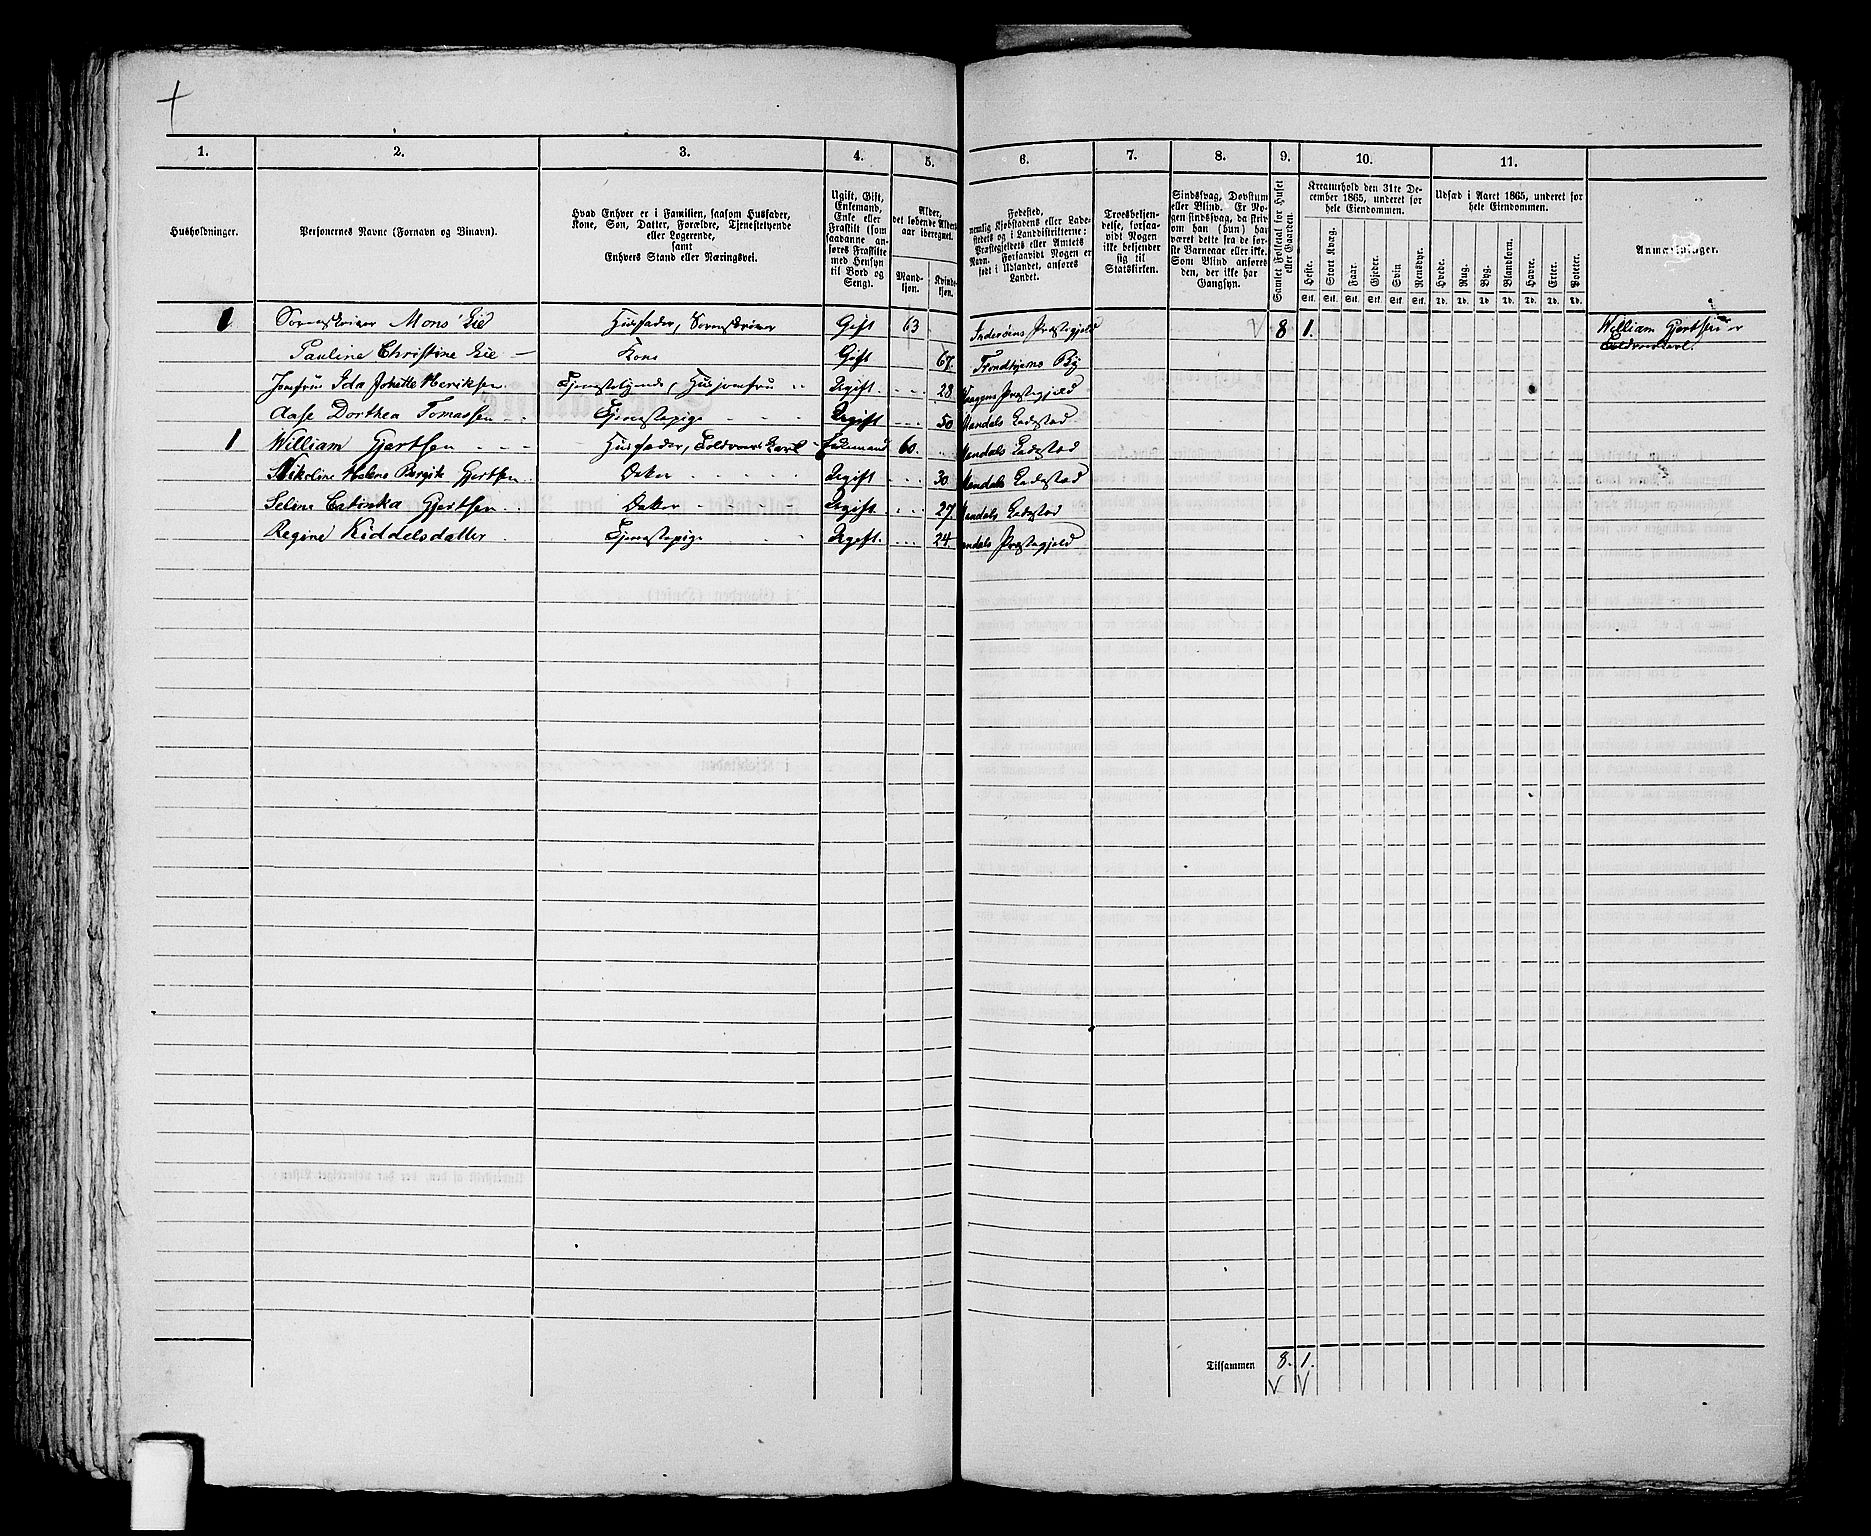 1. 2. 3. 4. 5. 6. 7. 8. 9. 10. 11.
Husholdninger.
Personernes Navne (Fornavn og Binavn).
Hvad Enhver er i Familien, saasom Husfader,
Kone, Søn, Datter, Forældre, Tjenestetyende
eller Logerende,
samt
Enhvers Stand eller Næringsvei.
Ugift, Gift,
Enkemand,
Enke eller
Fraskilt (som
saadanne an-
føres Fraskilte
med Hensyn
til Bord og
Seng).
Alder,
det løbende Alders-
aar iberegnet.
Mand-
kjøn.
Kvinde-
kjøn.
Fødested,
nemlig Kjøbstadens eller Lade-
stedets og i Landdistrikterne:
Præstegjeldets eller Amtets
Navn. Forsaavidt Nogen er
født i Udlandet, anføres
Landet.
Troesbekjen-
delse, forsaa-
vidt Nogen
ikke bekjender
sig til
Statskirken.
Sindssvag, Døvstum
eller Blind. Er No-
gen sindssvag, da skriv
om han (hun) har
været dette fra de før-
ste Barneaar eller ikke.
Som Blind anføres
den, der ikke har
Gangsyn.
Samlet Folketal for Huset
eller Gaarden.
Kreaturhold den 31te De-
cember 1865, underet for
hele Eiendommen.
Heste. Stort Kvæg. Faar. Gjeder. Svin. Rensdyr.
Stk. Stk. Stk. Stk. Stk. Stk.
Udsæd i Aaret 1865, underet for
hele Eiendommen.
Hvede. Rug. Byg. Blandkorn. Havre. Erter. Poteter.
Td. Td. Td. Td. Td. Td. Td.
Anmærkninger.
1 Sorenskriver Mons Lie Husfader, Sorenskriver Gift 63 Inderøens Præstegjeld 8 1. William Gjertsen er
Pauline Christine Lie Kone Gift 67. Trondhjems By
Jomfru Ida Johette Henriksen. Tjenestetyende, Husjomfru Ugift 28 Præstegjeld
Aase Dorthea Tomassen Tjenestepige Ugift 50 Mandals Ladestad
1 William Gjertsen Husfader, Enkemand 60. Mandals Ladestad
Nikoline Helene Bergite Gjertsen. Datter Ugift 30 Mandals Ladestad
Seline Catinka Gjertsen Datter Ugift. 27 Mandals Ladestad
Regine Kiddelsdatter Tjenestepige Ugift. 24. Mandals Præstegjeld
Tilsammen 8. 1.